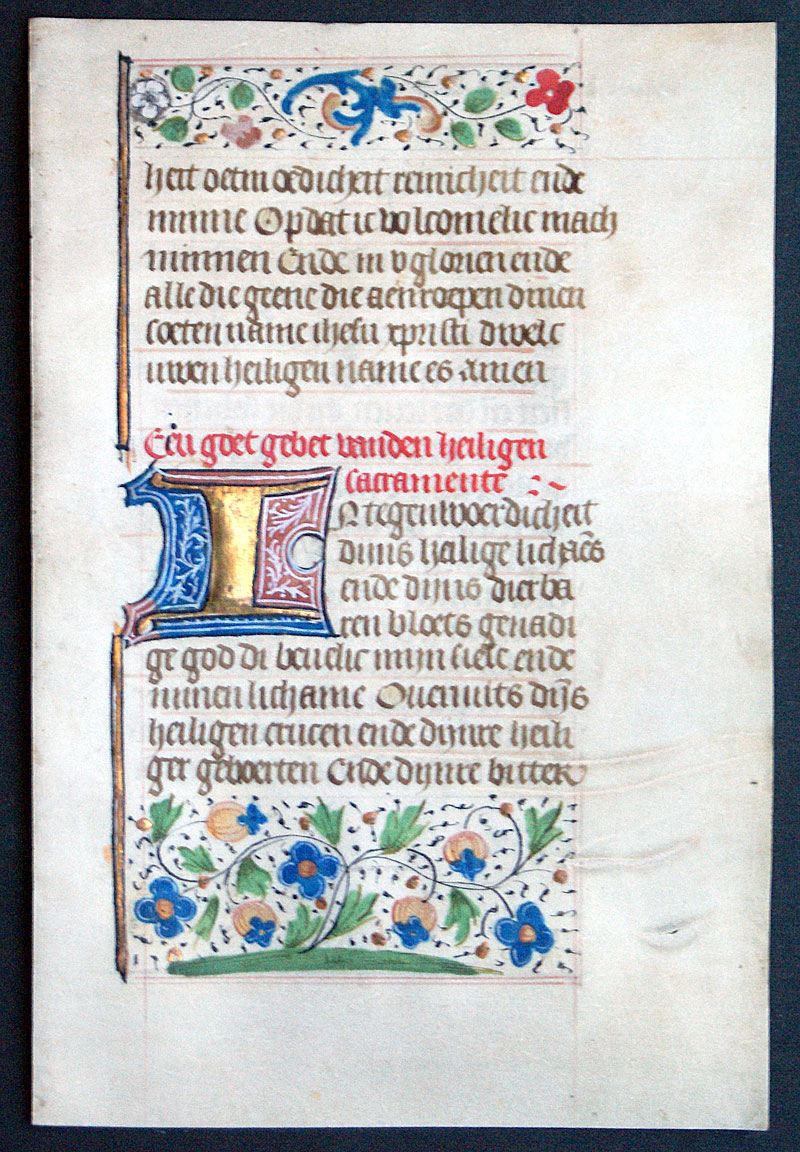 heit oetmoēdicheit reinicheit ende
minne Opdat ic volcomelic mach
minnen Ende in v glorien ende
alle die geene die aenroepen dinen
soeten name ihesu xpristi dwelc
uwen heiligen name es amen
Een goet gebet vanden heiligen
sacramente :~
IN tegenwoerdicheit
dijns heilige lichāēs
ende dijns dierba
ren bloets genadi
ge god di beuelic mijn siele ende
minen lichame Ouermits dijs
heiligen crucen ende dijnre heili
ger geboerten Ende dijnre bitter